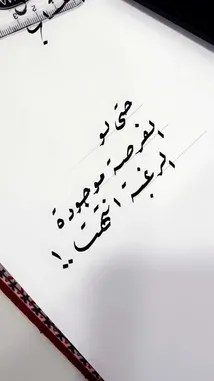 حتى لو
الفرصة موجودة
الرغبة انتهت !!